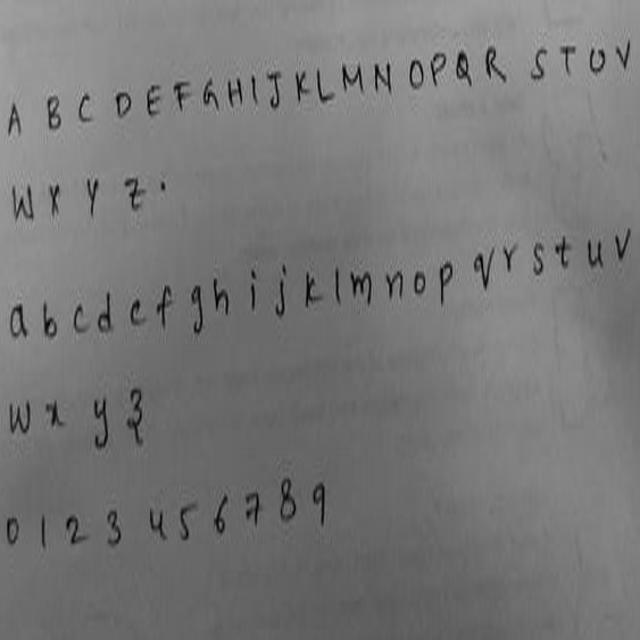 A B C D E F G H I J K L M N O P Q R S T U V
W X Y Z .
a b c d e f g h i j k l m n o p q r s t u v
w x y z
0 1 2 3 4 5 6 7 8 9